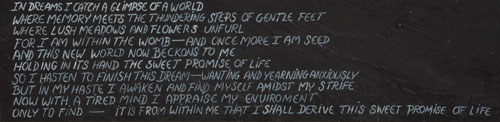 IN DREAMS I CATCH A GLIMPSE OF A WORLD
WHERE MEMORY MEETS THE THUNDERING STEPS OF GENTLE FEET
WHERE LUSH MEADOWS AND FLOWERS UNFURL
FOR I AM WITHIN THE WOMB — AND ONCE MORE I AM SEED
AND THIS NEW WORLD NOW BECKONS TO ME
HOLDING IN ITS HAND THE SWEET PROMISE OF LIFE
SO I HASTEN TO FINISH THIS DREAM — WANTING AND YEARNING ANXIOUSLY
BUT IN MY HASTE I AWAKEN AND FIND MYSELF AMIDST MY STRIFE
NOW WITH A TIRED MIND I APPRAISE MY ENVIROMENT
ONLY TO FIND — IT IS FROM WITHIN ME THAT I SHALL DERIVE THIS SWEET PROMISE OF LIFE